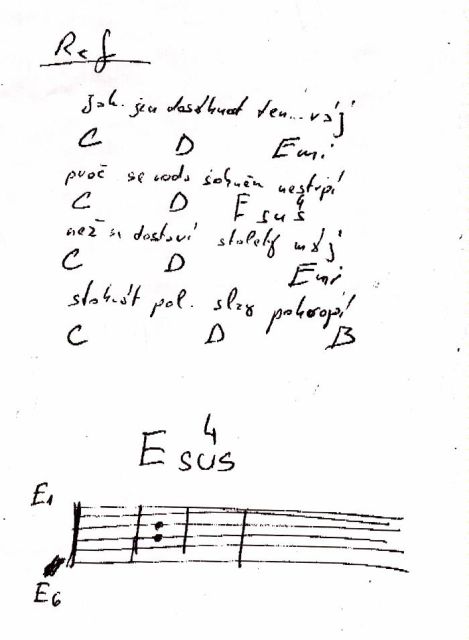 Ref
jak jen dosáhnout ten... ráj
C D Emi
proč se voda s ohněm nestrpí
C D E sus 4
než se dostaví stoletý máj
C D Emi
stokrát pol. slzy pokropí
C D B
E sus 4
E1
E6